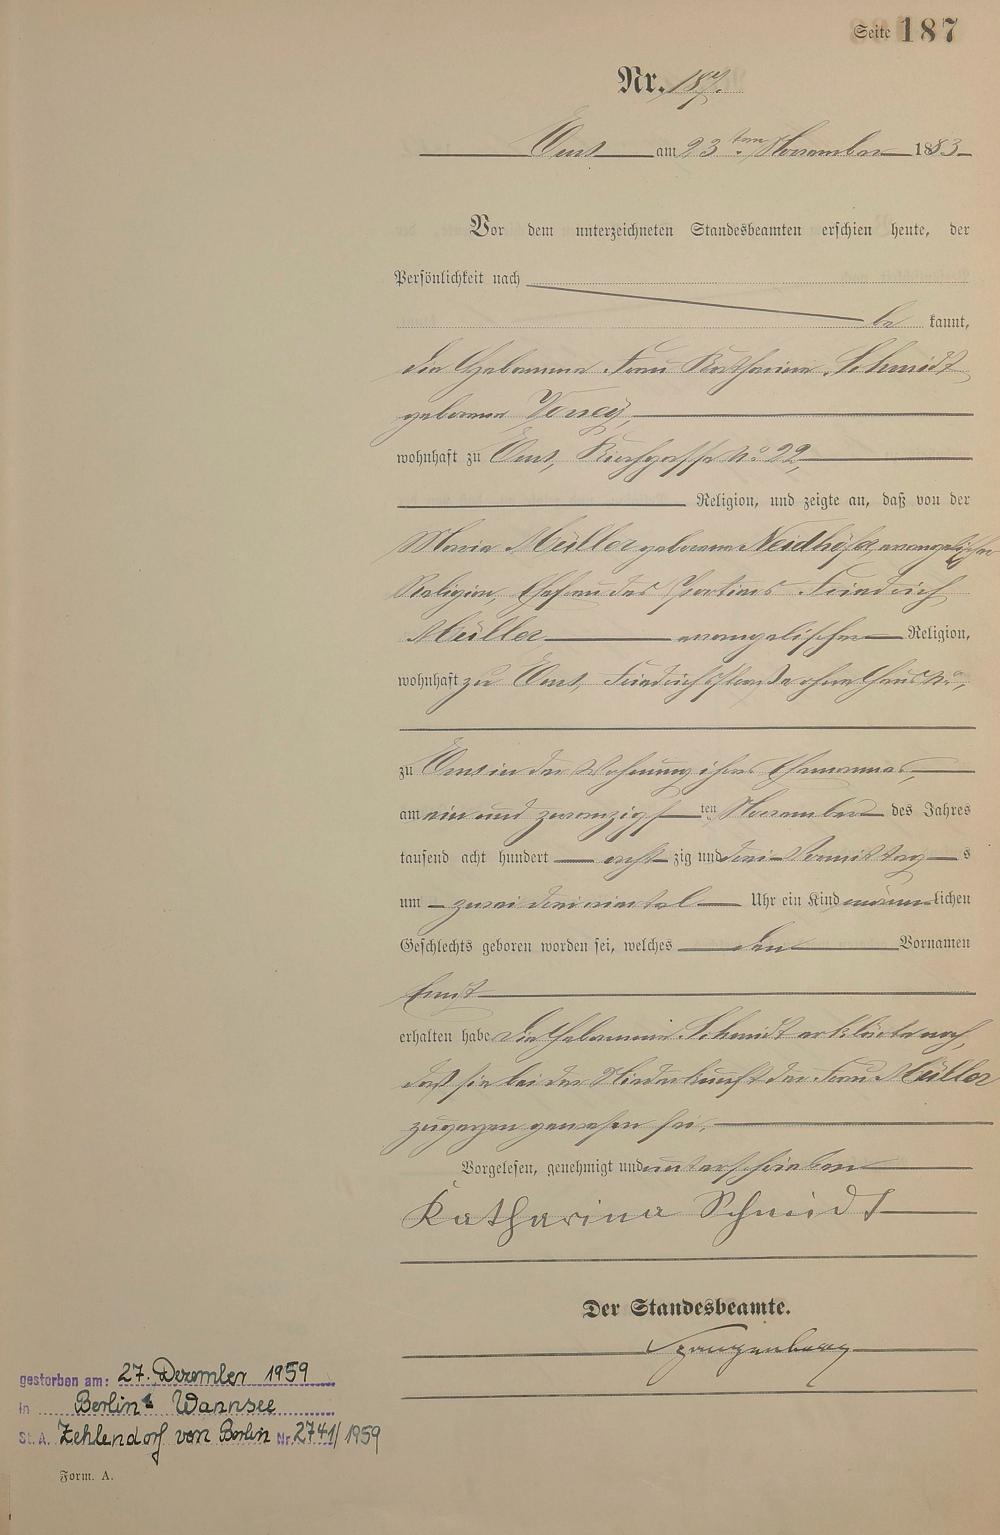 Seite 187
Nr. 187.
Ems am 23ten November 1883
Vor dem unterzeichneten Standesbeamten erschien heute, der
Persönlichkeit nach
be kannt,
die Hebamme Frau Katharina Schmidt
geborene
wohnhaft zu Ems, Kirchgasse No 22,
Religion, und zeigte an, daß von der
Maria Müller geborene Neidhöfer, evangelischer
Religion, Ehefrau des Portiers Friedrich
Müller evangelischer Religion,
wohnhaft zu Ems, Friedrichstraße ohne Haus No,
zu Ems in der Wohnung ihres Ehemannes,
am ein und zwanzigsten November des Jahres
tausend acht hundert acht zig und drei Vormittag s
um zwei dreiviertel Uhr ein Kind männlichen
Geschlechts geboren worden sei, welches den Vornamen
Ernst
erhalten habe Die Hebamme Schmidt erklärte noch,
daß sie bei der Niederkunft der Frau Müller
zugegen gewesen sei.
Vorgelesen, genehmigt und unterschrieben
Katharina Schmidt
Der Standesbeamte.
Spangenberg
gestorben am: 27. Dezember 1959
in Berlin-Wannsee
St. A. Zehlendorf von Berlin Nr. 2741/1959
Form. A.